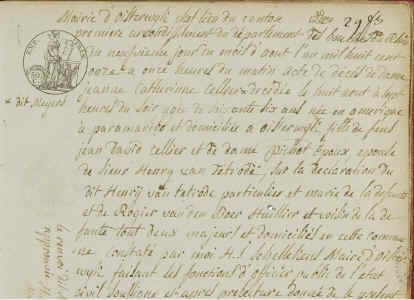 Mairie d'Oisterwyk chef lieu du canton
premiere arrondissement du département des bouches du Rhin
du neufvieme jour du mois d'aout l'an mil huit cent
onze a onze heures du matin acte de décès de dame
+ dit Meyers
jeanne Catherinne Cellier + decédée le huit aout a sept
heures du soir agée de soixante six ans née en amerique
a paramaribo et domiciliée a Osterwyk, fille de feu
jean David Cellier et de dame pichot Epoux epouse
de sieur Henry van Tetrode, sur la declaration du
dit Henry van tetrode particulier et marie de la defunte
et de Rogier van den Boer Huissier et voisin de la de
funte tout deux majeurs et domiciliés en cette commu
ne constaté par moi H. J. Maire d'Oister
wyk faisant les fonctions d'officier public de l'etat
civil soussigné et après lecture donné de la presente